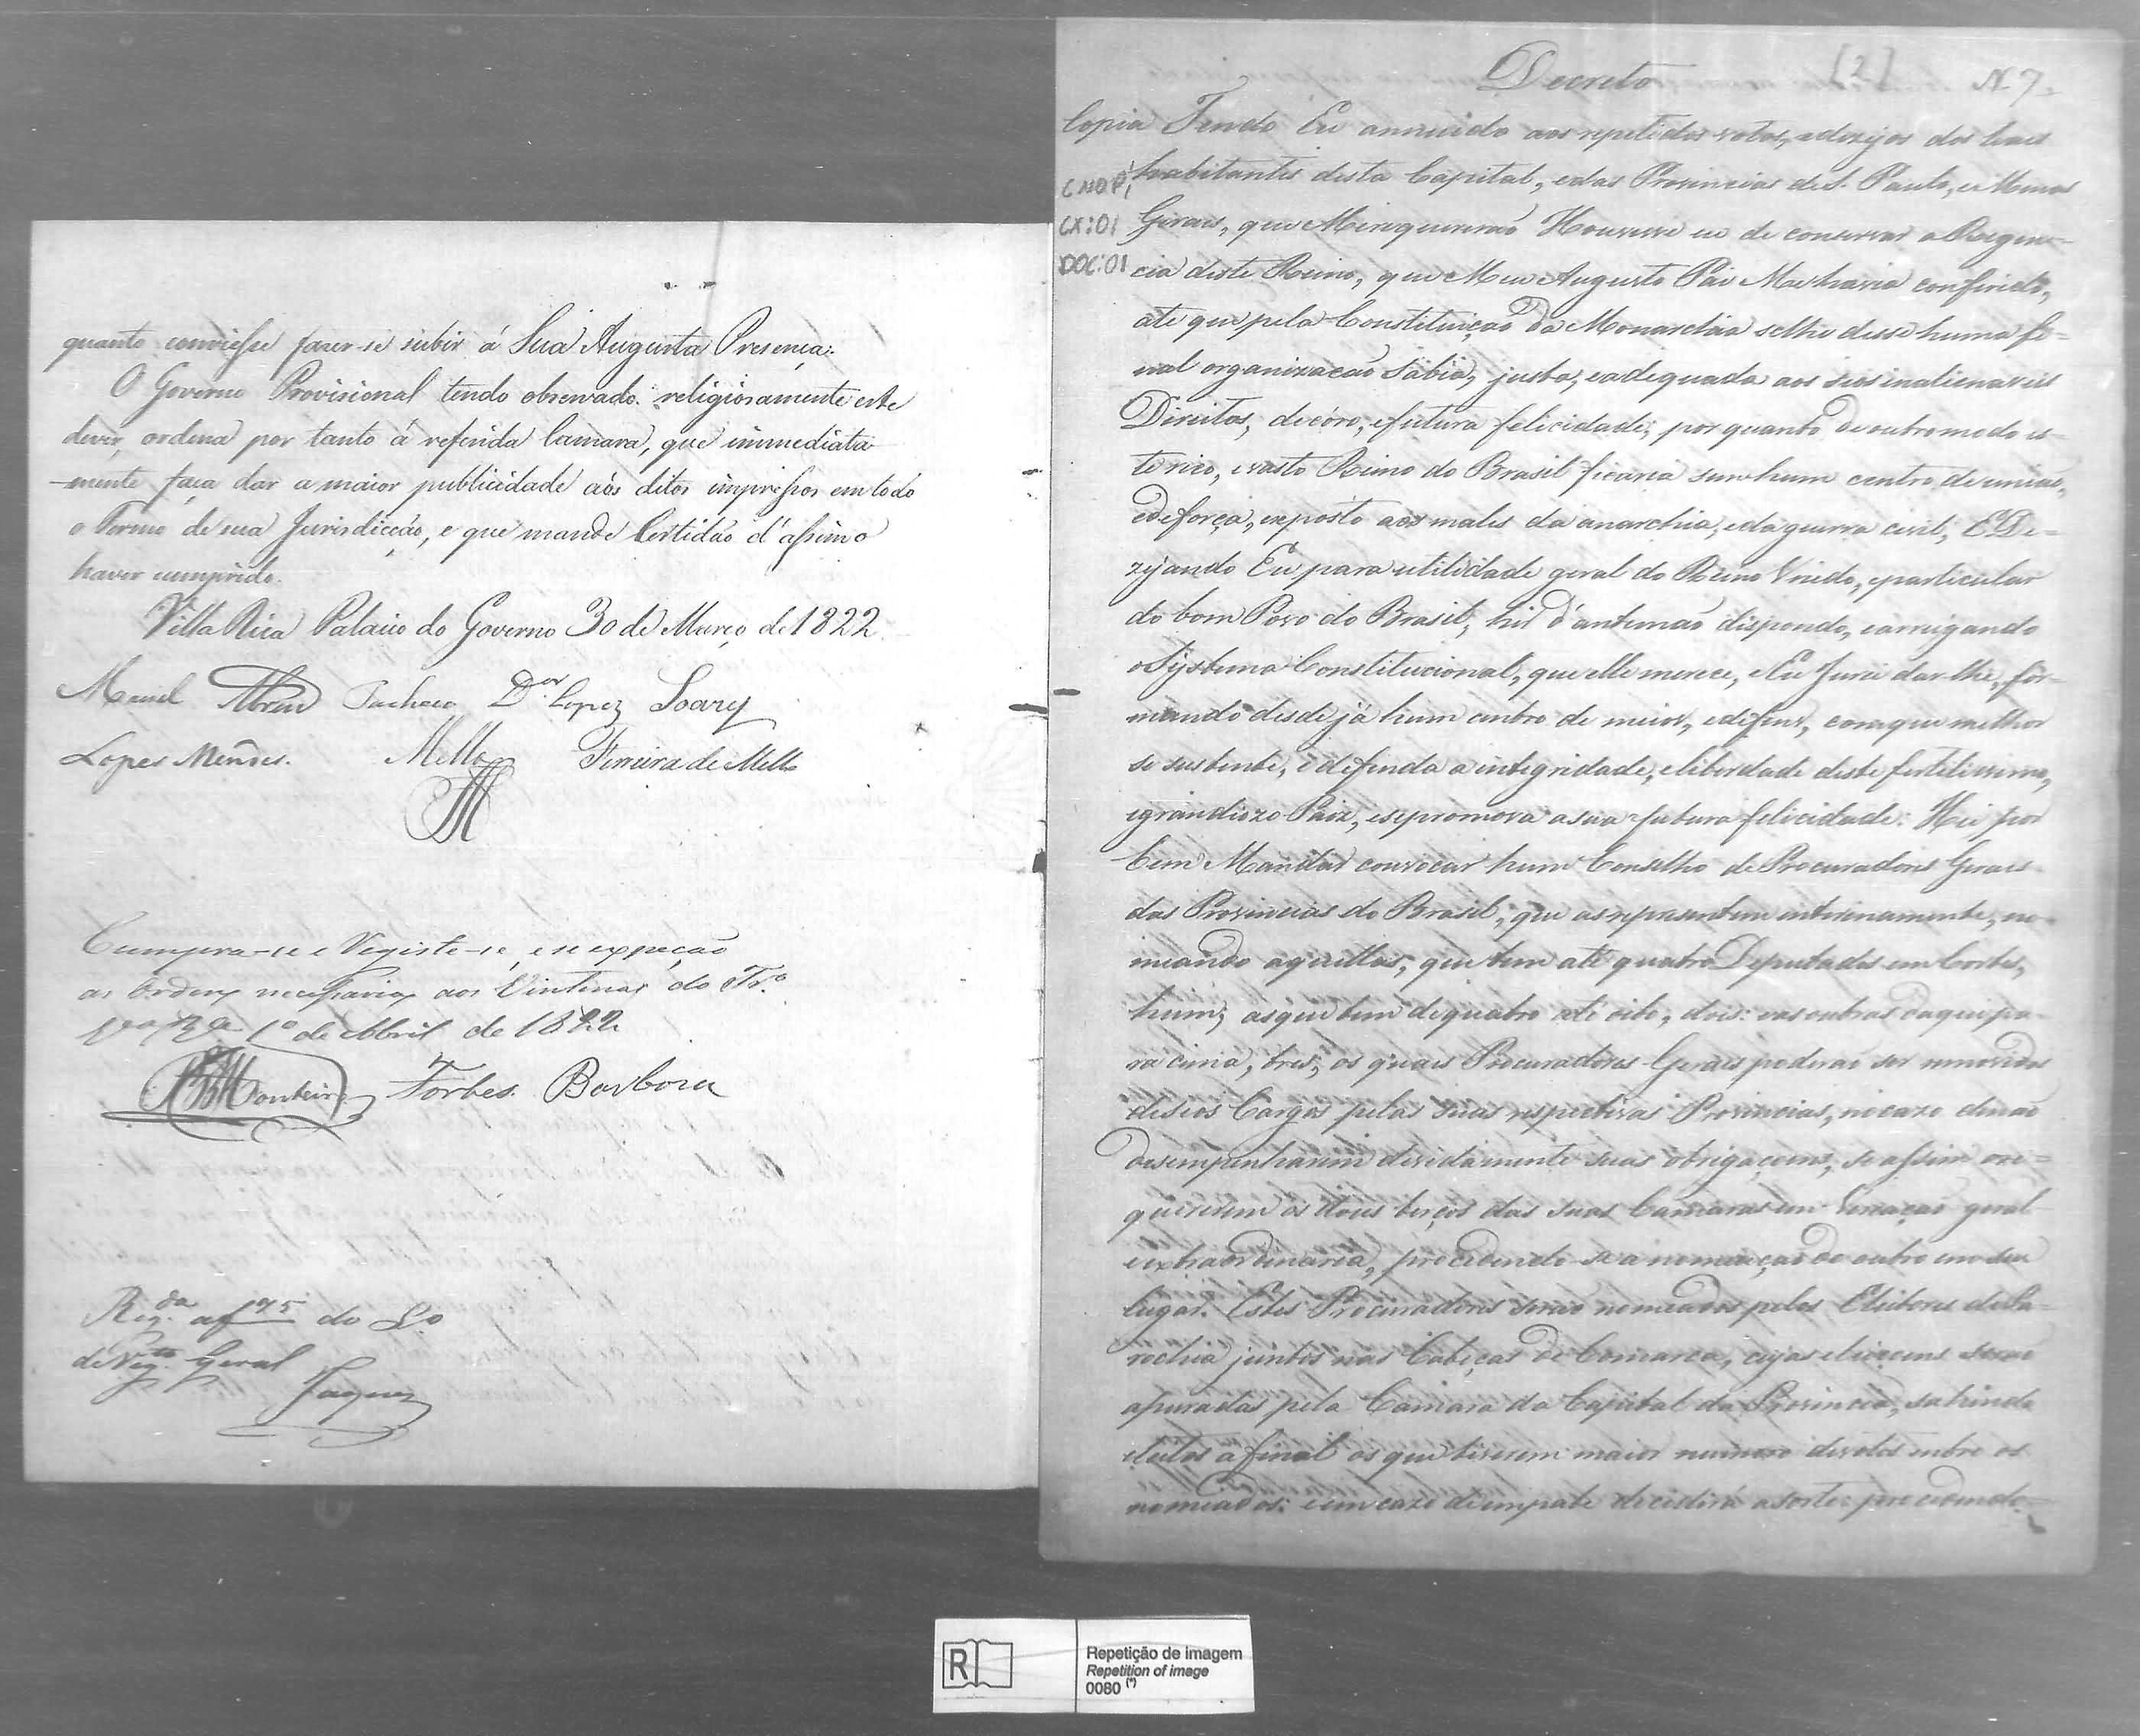 quanto conviesse fazer-se subir á Sua Augusta Presença.
O Governo Provisional tendo observado religiosamente este
dever, ordena por tanto á referida Camara, que immediata
-mente faça dar a maior publicidade aos ditos impressos em todo
o Termo de sua Jurisdicção, e que mande Certidão d'assim o
haver cumprido.
Villa Rica Palacio do Governo 30 de Março de 1822
Abreu Pacheco D.or Lopez Soarez
Lopes Mendes. Mello Ferreira de Mello
Cumpra-se e Registe-se, e se expeção
as Ordens necessarias aos Vintenas do Tr.o
1º de Abril de 1822
Monteiro Forbes. Barboza
Reg.da a f 175 do L.o
de Reg.to Geral
Jaques
Decreto [2] N. 7
Copia Tendo Eu annuido aos repetidos votos, e dezejos dos leaes
CNOP, habitantes desta Capital, e das Provincias de S. Paulo, e Minas
CX:01 Geraes, que Me requererão Houvesse eu de conservar a Regen-
DOC:01 cia deste Reino, que Meu Augusto Pai Me havia conferido,
até que pela Constituição da Monarchia se lhe desse huma fi-
nal organização sabia, justa, e adequada aos seos inalienaveis
Direitos, decóro, e futura felicidade; por quanto de outro modo es-
te rico, e vasto Reino do Brasil ficaria sem hum centro de união,
e de força, exposto aos males da anarchia, e da guerra civil; E De-
zejando Eu para utilidade geral do Reino Unido, e particular
do bom Povo do Brasil, hir d'antemão dispondo, e arreigando
o Systema Constitucional, que elle merece, e Eu Jurei dar-lhe, for-
mando desde já hum centro de meios, e de fins, com que melhor
se sustente, e defenda a integridade, e liberdade deste fertilissimo,
e grandiozo Paiz, e se promova a sua futura felicidade: Hei por
bem Mandar convocar hum Conselho de Procuradores Geraes
das Provincias do Brasil, que as representem interinamente, no-
meando aquellas, que tem até quatro Deputados em Cortes,
hum; as que tem de quatro até oito, dois: e as outras daqui pa-
ra cima, tres; os quaes Procuradores Geraes poderão ser removidos
de seos Cargos pelas suas respectivas Provincias, no cazo de não
desempenharem devidamente suas obrigaçoens, se assim o re-
quererem os dous terços das suas Camaras em Vereação geral
e extraordinaria, procedendo-se a nomeação de outro em seu
lugar. Estes Procuradores serão nomeados pelos Eleitores de Pa-
rochia juntos nas Cabeças de Comarca, cujas eleiçoens serão
apuradas pela Camara da Capital da Provincia, sahindo
eleitos a final os que tiverem maior numero de votos entre os
nomeados: e em cazo de empate decidirá a sorte: procedendo-
R
Repetição de imagem
Repetition of image
0080 (*)